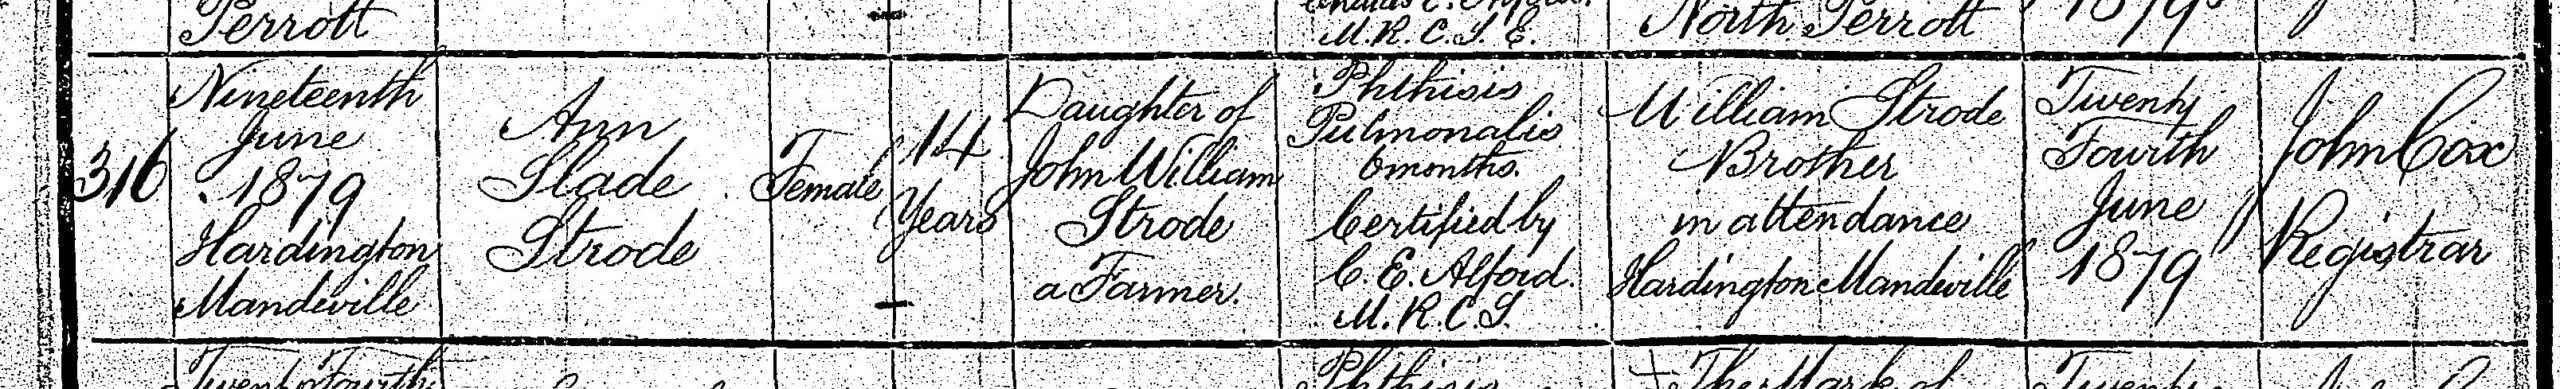 Perrott
M.R.C.S.E.
North Perrott
1879
316
Nineteenth
June
1879
Hardington
Mandeville
Ann
Slade
Strode
Female
14
Years
Daughter of
John William
Strode
a Farmer.
Phthisis
Pulmonalis
6 months.
Certified by
C. E. Alford.
M.R.C.S.
William Strode
Brother
in attendance
Hardington Mandeville
Twenty
Fourth
June
1879
John Cox
Registrar
Twenty Fourth
Phthisis
The Mark of
Twenty